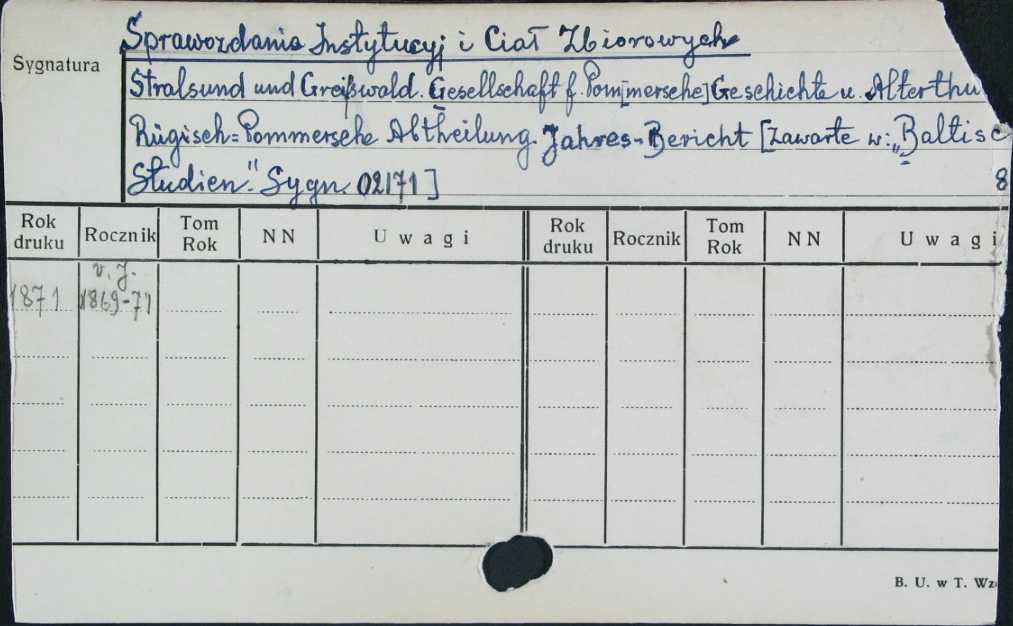 Sprawozdania Instytucyj i Ciał Zbiorowych
Sygnatura
Stralsund und Greißwald. Gesellschaft f. Pom[mersche] Geschichte u. Alterthu
Rügisch=Pommersche Abtheilung. Jahres-Bericht [zawarte w: „Baltisc
Studien." Sygn. 02171]
8
Rok druku Rocznik Tom Rok NN Uwagi Rok druku Rocznik Tom Rok NN Uwagi
v. J.
1871 1869-71
B. U. w T. Wz